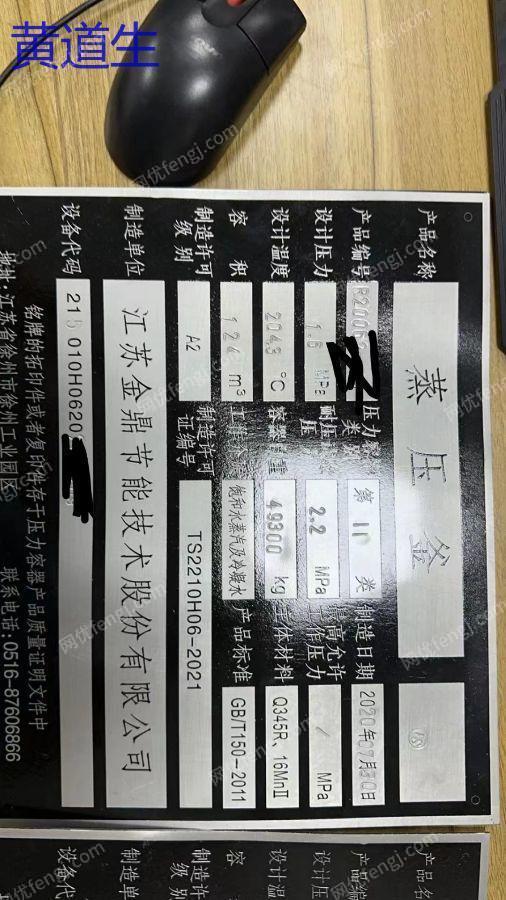 黄道生
产品名称 蒸压釜
产品编号 R2006 压力容器类别 第 II 类 制造日期 2020年07月30日
设计压力 1.6 MPa 耐压 压 2.2 MPa 高允许工作压力 / MPa
设计温度 204.3 °C 容器 重 49300 kg 主体材料 Q345R、16MnII
容 积 124 m³ 工作 饱和水蒸汽及冷凝水 产品标准 GB/T150-2011
制造许可级别 A2 制造许可证编号 TS2210H06-2021
制造单位 江苏金鼎节能技术股份有限公司
设备代码 215 010H0620
铭牌的拓印件或者复印件存于压力容器产品质量证明文件中
地址:江苏省徐州市徐州工业园区 联系电话:0516-87606866
产品名
产品编
设计压
设计温
容
制造许
级别
制造单
设备代
网优fengj.com